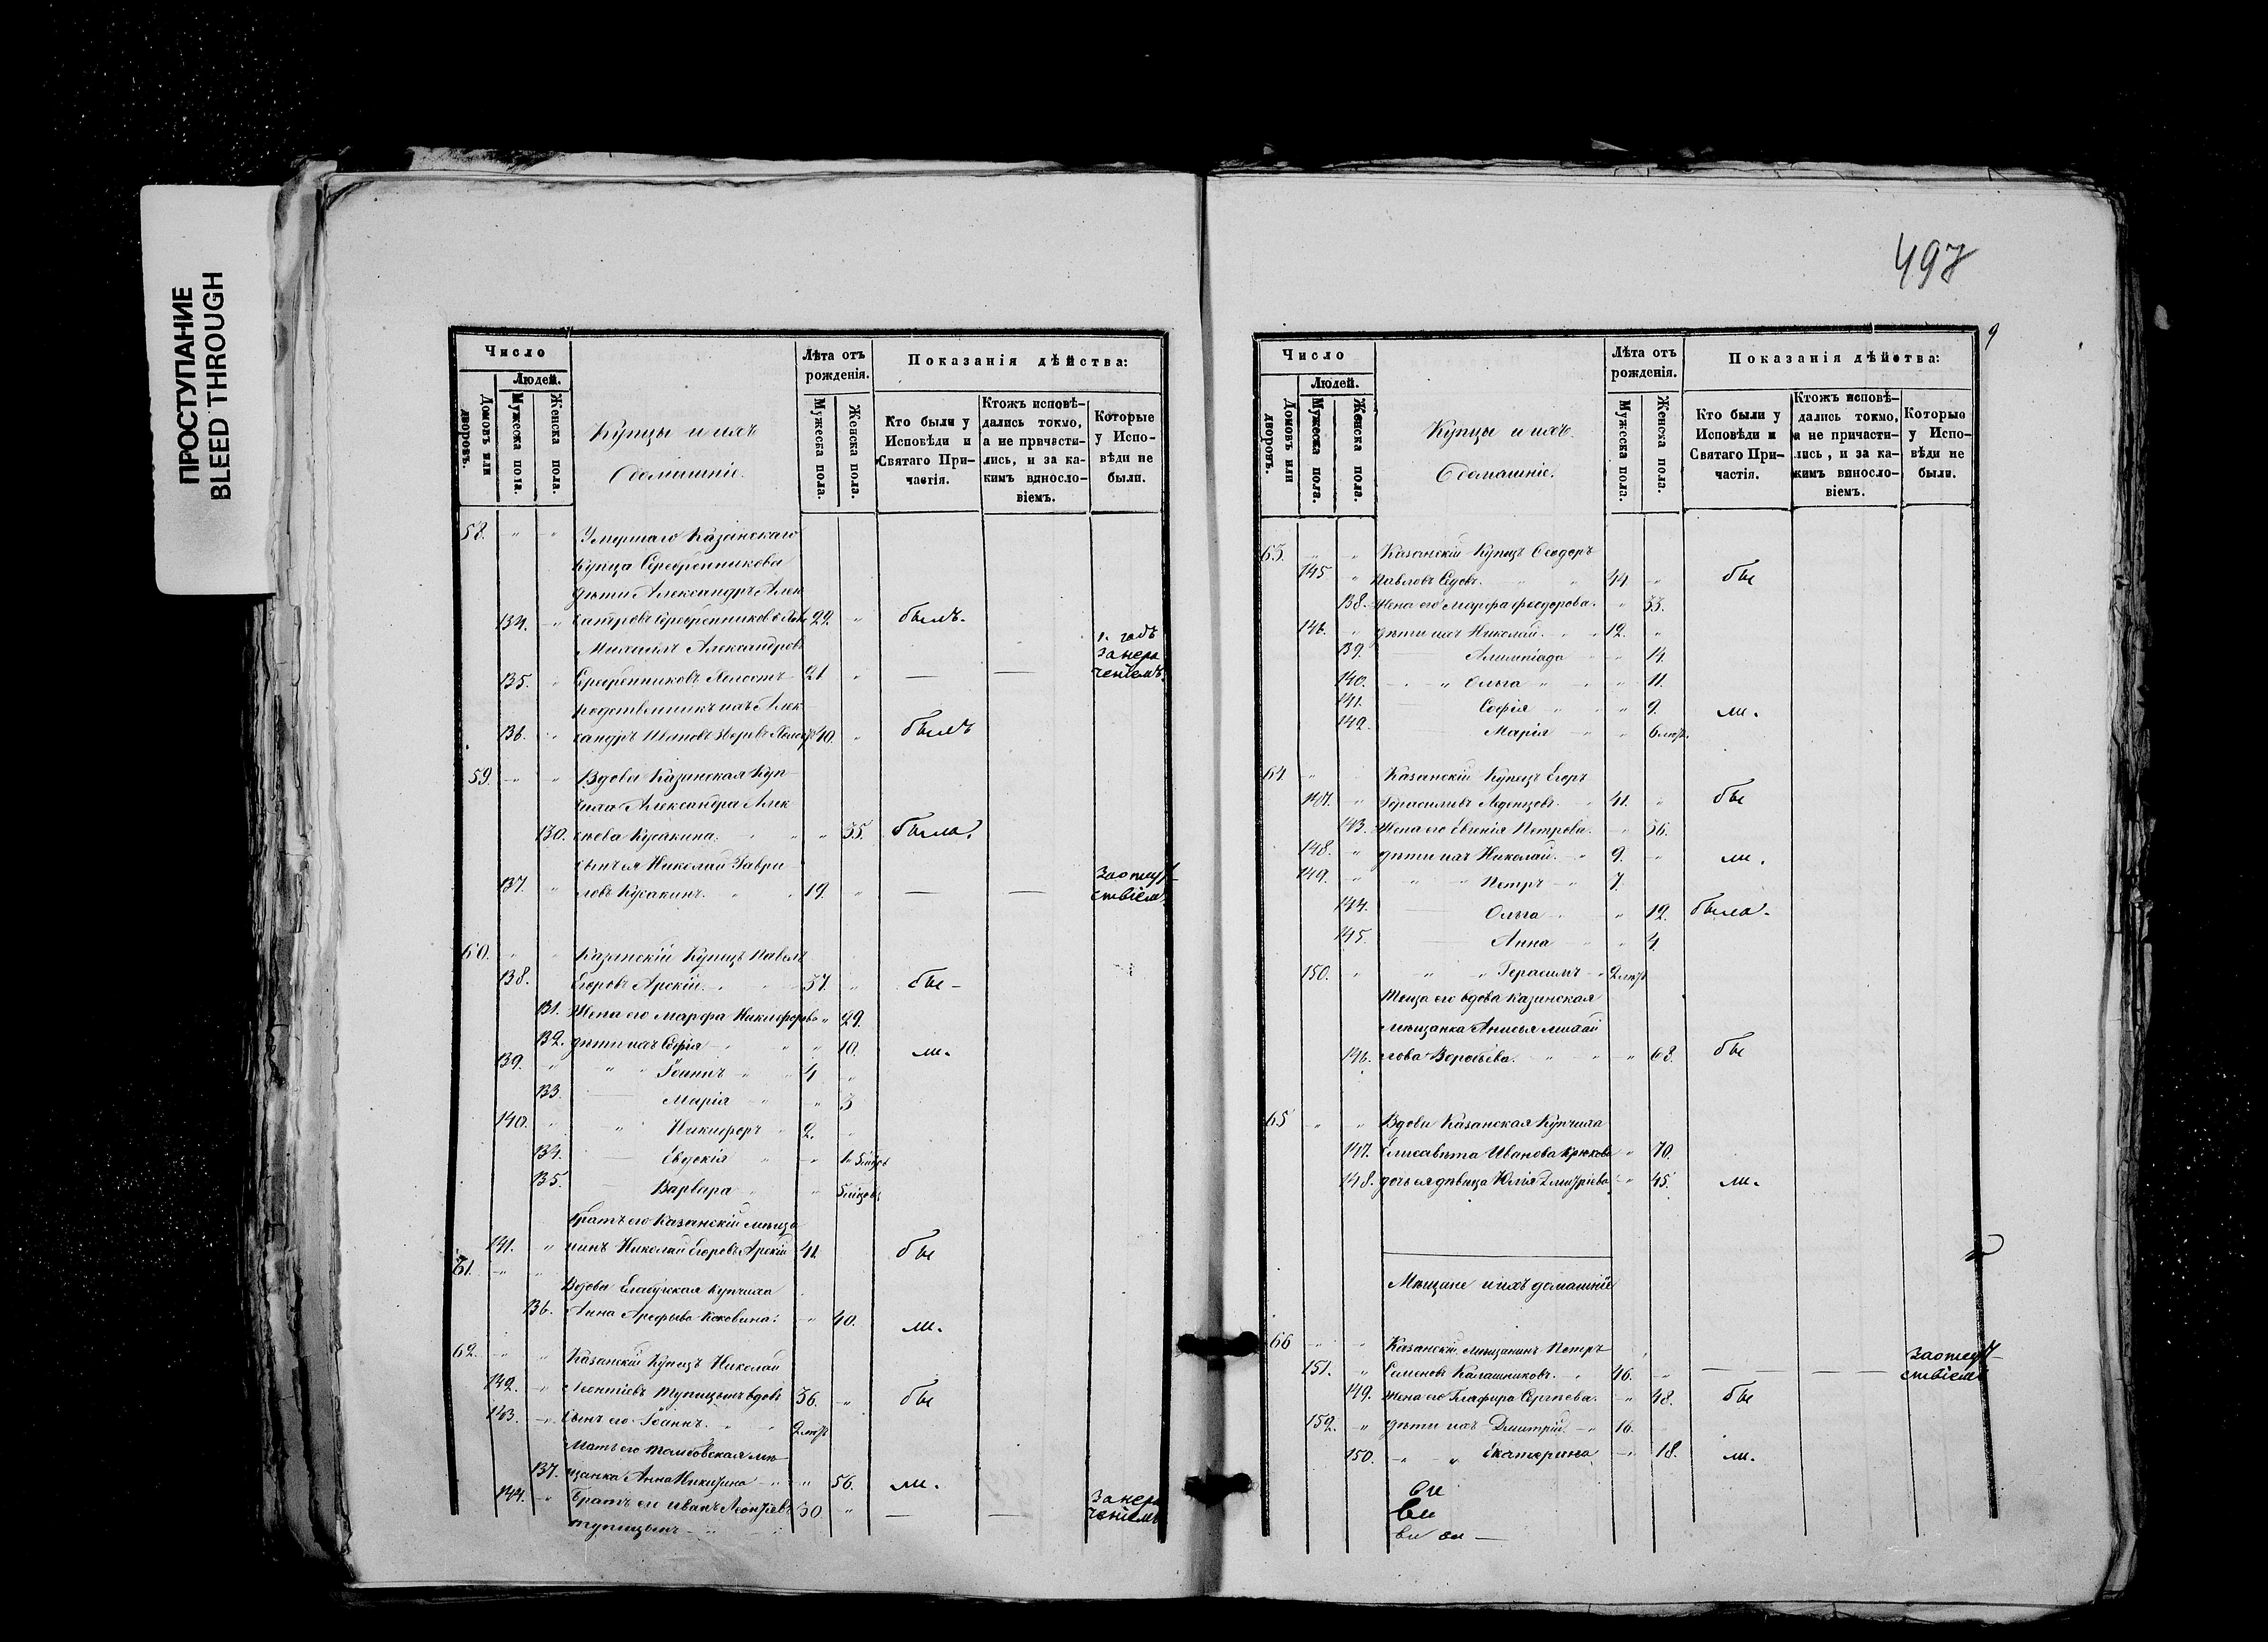 ПРОСТУПАНИЕ
BLEED THROUGH
Число
Людей.
Домовъ или дворовъ.
Мужеска пола.
Женска пола.
Купцы и ихъ
домашніе.
Лѣта отъ рожденія.
Мужеска пола.
Женска пола.
Показанія дѣйства:
Кто были у Исповѣди и Святаго Причастія.
Ктожъ исповѣдались токмо, а не причастились, и за какимъ винословіемъ.
Которые у Исповѣди не были.
58. " " Умершаго Казанскаго
купца Серебренникова
дѣти Александръ Алек
134. " сандровъ Серебренниковъ 22. " былъ.
Михаилъ Александровъ 1. годъ
135. " Серебренниковъ 21 " — — за нера
ченіемъ.
родственникъ ихъ Алек
136. " сандръ Ивановъ 40. " былъ
59. " " Вдова Казанская Куп
чиха Александра Алек
130. сѣева Кусакина. " " 55. была.
сынъ ея Николай Гаври
137. " ловъ Кусакинъ. " 19. " — — за отсут
ствіем.
60. " " Казанскій Купецъ Павелъ
138. Егоровъ Арскій. " 57. " бы —
131. Жена его Марфа Никифорова " 29.
132. дѣти ихъ Софія " " 10. ли.
139. " " " Іоаннъ " 4 "
133. — Марія " " 3
140. " " Никифоръ " 2. "
134. — Евдокія " "
135. — Варвара " "
братъ его Казанскій мѣща
141. " нинъ Николай Егоровъ Арскій 41. бы
61. " "
Вдова Елабужская купчиха
136. Анна Арефьева " 40. ли.
62. " " Казанскій Купецъ Николай
142. " Леонтіевъ Тупицынъ вдовъ 36. " бы
143. " сынъ его Іоаннъ. "
Мать его Тамбовская мѣ
137. щанка Анна Никитина " " 56. ли.
144. " Братъ его Иванъ Леонтіевъ 30. " — — за нера
Тупицынъ " ченіемъ
497
9
Число
Людей.
Домовъ или дворовъ.
Мужеска пола.
Женска пола.
Купцы и ихъ
домашніе.
Лѣта отъ рожденія.
Мужеска пола.
Женска пола.
Показанія дѣйства:
Кто были у Исповѣди и Святаго Причастія.
Ктожъ исповѣдались токмо, а не причастились, и за какимъ винословіемъ.
Которые у Исповѣди не были.
63. " " Казанскій Купецъ Ѳеодоръ
145 " Павловъ Сѣдовъ. " " 44 " бы
138. Жена его Марфа Ѳеодорова. " 33.
146. " дѣти ихъ Николай. " 12. "
139. Алимпіада " 14.
140. " " Ольга " " 11.
141. — Софія " " 9. ли.
142. — Марія " "
64. " Казанскій Купецъ Егоръ
147. " Герасимовъ " 41. " бы
143. Жена его Евгенія Петрова. " 36.
148. " дѣти ихъ Николай. " 9. " ли.
149. " " " Петръ " 7.
144. — Ольга " " 12. была.
145. — Анна " " 4.
150. " " " Герасимъ "
Теща его вдова Казанская
мѣщанка Анисья Михай
146. лова Воробьева. " " " 68. бы
65 " " Вдова Казанская Купчиха
147. Елисавета Иванова Крюкова " 70.
148. дочь ея дѣвица Юлія Дмитріева " 45. ли.
Мѣщане и ихъ домашніе
66 " " Казанскій мѣщанинъ Петръ
151. " Семеновъ Калашниковъ. " 46. " — — за отсут
ствіем
149. Жена его Глафира Сергѣева. " 48. бы
152. " дѣти ихъ Дмитрій. " 16.
150. " " Екатерина " 18. ли.